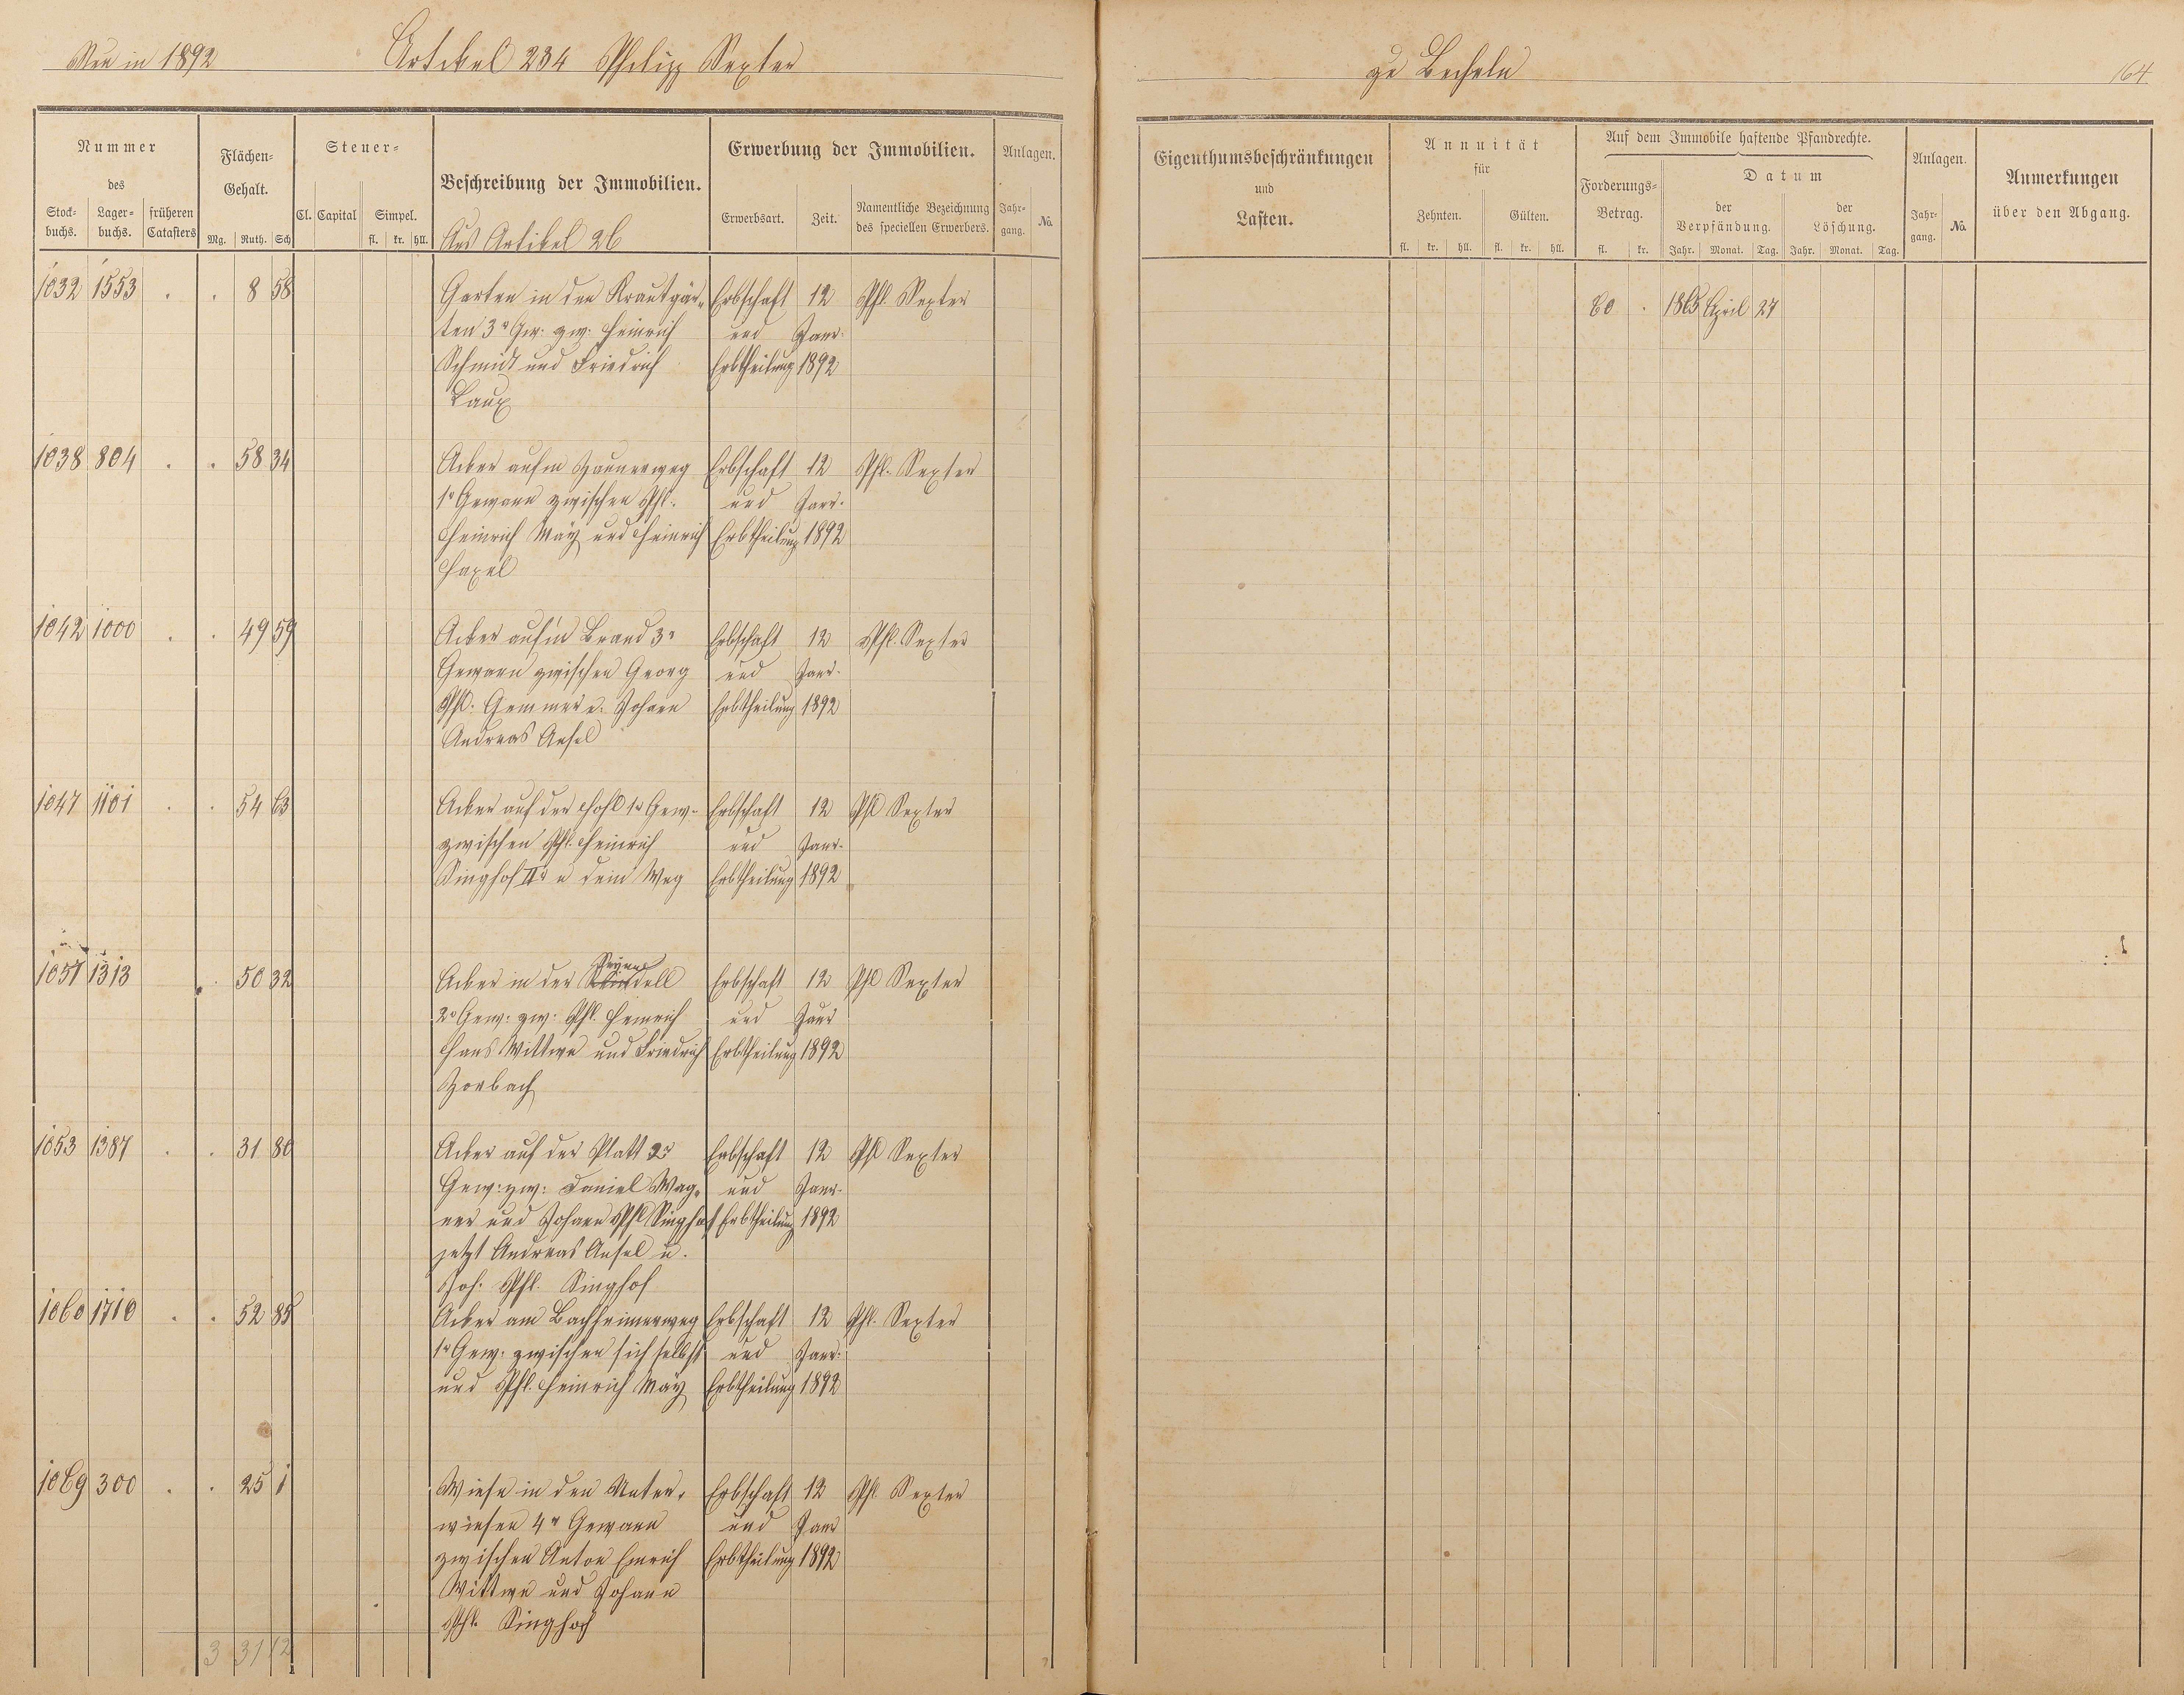 Neu in 1892 Artikel 234 Philipp Sexter
zu Becheln 164
Nummer
des
Stock-
buchs.
Lager-
buchs.
früheren
Catasters
Flächen-
Gehalt.
Mg. Ruth. Sch
Steuer-
Cl. Capital Simpel.
fl. kr. hll.
Beschreibung der Immobilien.
Aus Artikel 26
Erwerbung der Immobilien.
Erwerbsart. Zeit.
Namentliche Bezeichnung
des speciellen Erwerbers.
Anlagen.
Jahr-
gang.
No.
Eigenthumsbeschränkungen
und
Lasten.
Annuität
für
Zehnten. Gülten.
fl. kr. hll. fl. kr. hll.
Auf dem Immobile haftende Pfandrechte.
Forderungs-
Betrag.
fl. kr.
Datum
der
Verpfändung.
Jahr. Monat. Tag.
der
Löschung.
Jahr. Monat. Tag.
Anlagen.
Jahr-
gang.
No.
Anmerkungen
über den Abgang.
1032 1553 . . 8 58 Garten in den Krautgär- Erbschaft 12 Phl. Sexter 60 . 1865 April 27
ten 3r Gw. zw. Heinrich und Janr.
Schmidt und Friedrich Erbtheilung 1892
Laux
1038 804 . . 58 34 Acker aufm Zaunerweg Erbschaft 12 Phl. Sexter
1r Gewann zwischen Phl. und Janr.
Heinrich May und Heinrich Erbtheilung 1892
Haxel
1042 1000 . . 49 59 Acker aufm Brand 3r Erbschaft 12 Phl. Sexter
Gewann zwischen Georg und Janr.
Phl. Gemmer u. Johann Erbtheilung 1892
Andreas Ansel
1047 1101 . . 54 63 Acker auf der Hohl 1r Gew. Erbschaft 12 Phl Sexter
zwischen Phl. Heinrich und Janr.
Singhof IIr u dem Weg Erbtheilung 1892
1051 1313 . 50 32 Acker in der dell Erbschaft 12 Phl Sexter
2r Gew. zw. Phl. Heinrich und Janr
Hans Wittwe und Friedrich Erbtheilung 1892
Zorbach
1053 1387 . . 31 80 Acker auf der Platt 2r Erbschaft 12 Phl Sexter
Gew. zw. Daniel Wag- und Janr.
ner und Johann Phl Singhof Erbtheilung 1892
jetzt Andreas Ansel u.
Joh. Phl. Singhof
1060 1710 . . 52 85 Acker am Bachheimerweg Erbschaft 12 Phl. Sexter
1r Gew. zwischen sich selbst und Janr.
und Phl. Heinrich May Erbtheilung 1892
1069 300 . . 25 1 Wiese in den Unter- Erbschaft 12 Phl Sexter
wiesen 4r Gewann und Janr
zwischen Anton Emrich Erbtheilung 1892
Wittwe und Johann
Phl. Singhof
3 31 12